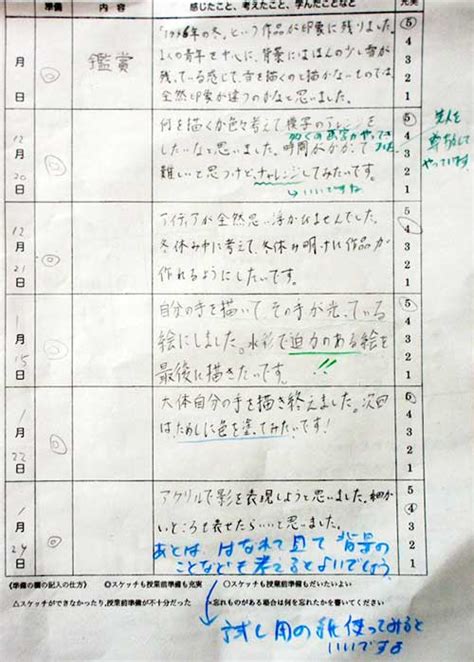 準備 内容 感じたこと、考えたこと、学んだことなど 充実
月 日 鑑賞
「1946年の冬」という作品が印象に残りました。
1人の青年を中心に、背景にはほんの少し雪が
残っている感じで、雪を描くのと描かないものでは、
全然印象が違うのかなと思いました。
5
4
3
2
1
12月20日
何を描くか色々考えて漢字のアレンジを
したいなと思いました。時間がかかって
難しいと思うけど、チャレンジしてみたいです。
いいですね
5
4
3
2
1
やっています
12月21日
アイディアが全然思い浮かびませんでした。
冬休み中に考えて、冬休み明けに作品が
作れるようにしたいです。
5
4
3
2
1
1月15日
自分の手を描いて、その手が光っている
絵にしました。水彩で迫力のある絵を
最後に描きたいです。
!!
5
4
3
2
1
1月22日
大体自分の手を描き終えました。次回
は、ためしに色を塗ってみたいです!
5
4
3
2
1
1月29日
アクリルで影を表現しようと思いました。細か
いところも表せたらいいと思いました。
5
4
3
2
1
あとは、はなれて見て背景の
ことなども考えるとよいでしょう
《準備の欄の記入の仕方》 ◎スケッチも授業前準備も充実 ○スケッチも授業前準備もだいたいよい
△スケッチができなかったり、授業前準備が不十分だった ・忘れものがある場合は何を忘れたかを書いてください
試し用の紙使ってみると
いいですよ